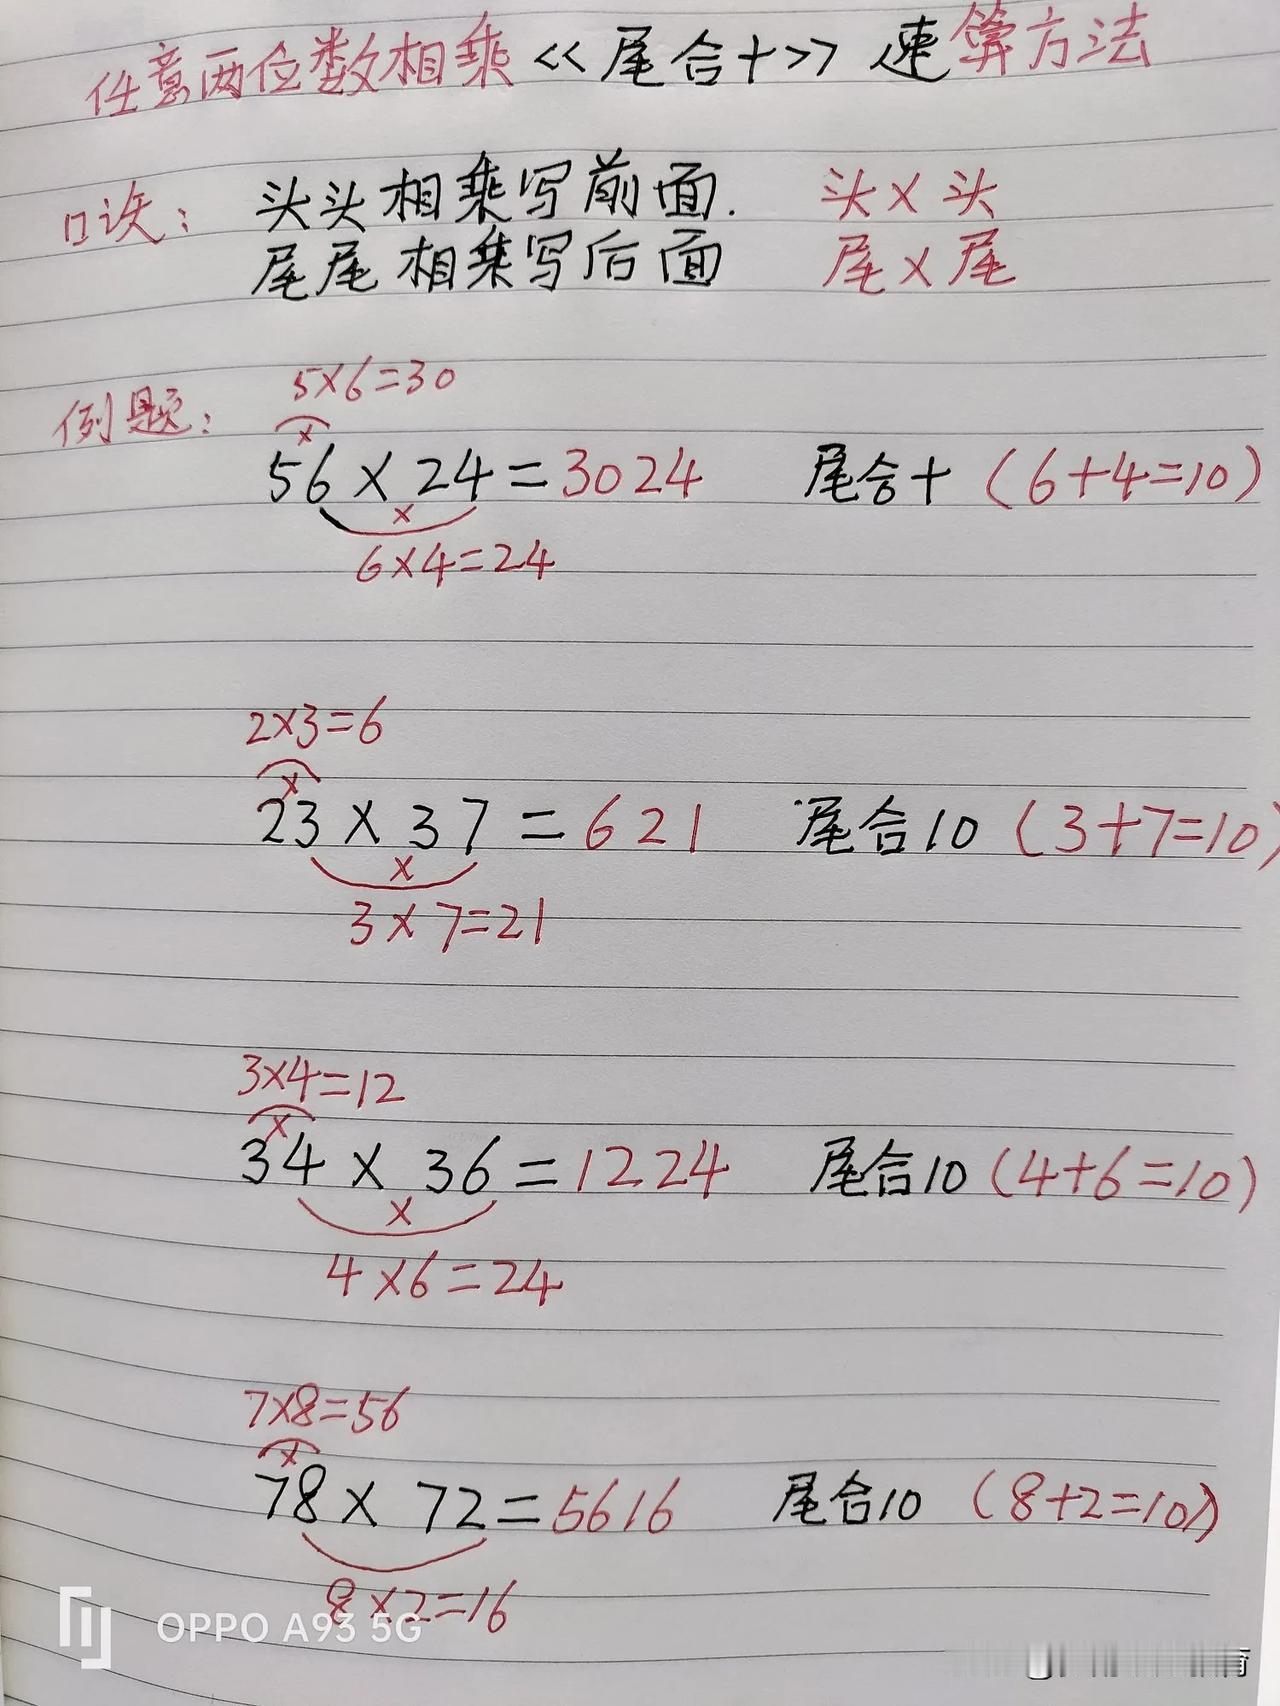 任意两位数相乘<<尾合十>>速算方法
口诀： 头头相乘写前面. 头×头
尾尾相乘写后面 尾×尾
5×6=30
例题：
×
56×24=3024 尾合十（6+4=10）
×
6×4=24
2×3=6
×
23×37=621 尾合10（3+7=10）
×
3×7=21
3×4=12
×
34×36=1224 尾合10（4+6=10）
×
4×6=24
7×8=56
×
78×72=5616 尾合10（8+2=10）
8×2=16
OPPO A93 5G